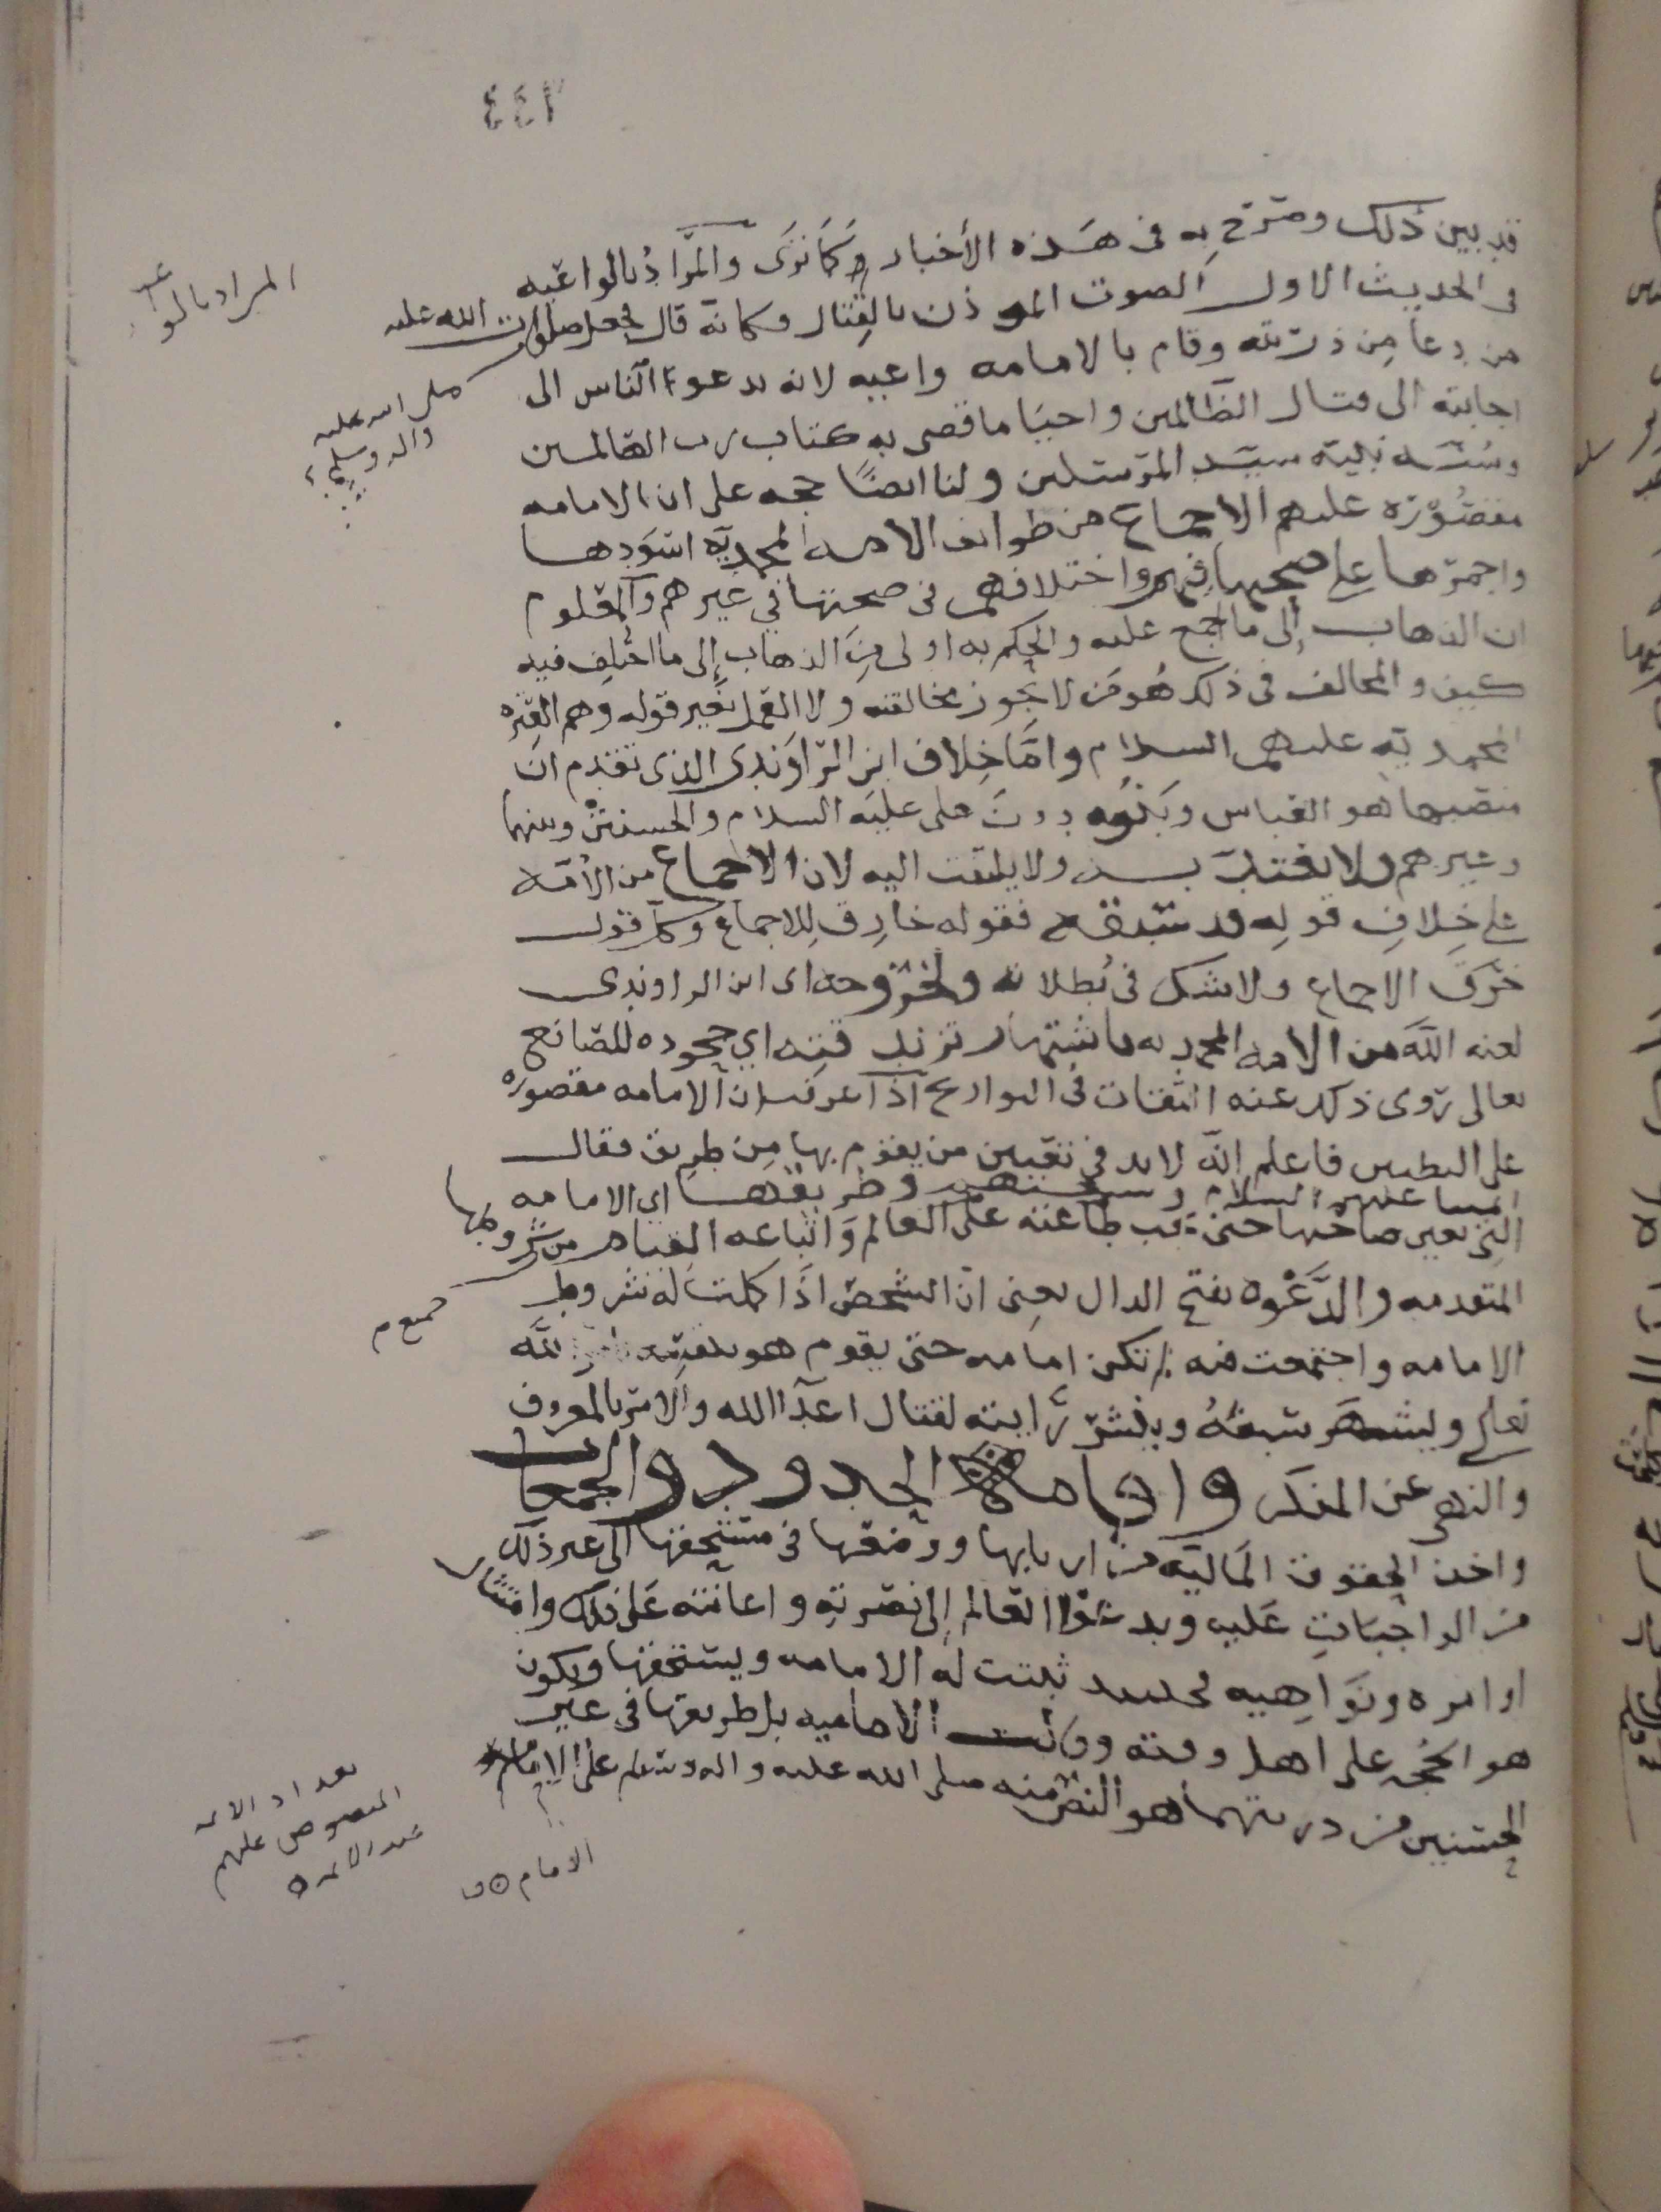 ٤٤٢
قد بين ذلك وصرّح به في هَذه الأخبار وَكمَا تَرَى والمَرادُ بالواعيه
في الحديث الاول الصوت الموذن بالقتال وكانه قال فجعل صلوات الله عليه
من دعا مِن ذريته وقام بالامامه واعيه لانه يدعو الناس الى
اجابته الى قتال الظالمين واحيَا ما قضى به كتاب رب العالمين
وسُنّه نبيه سيّد المرسلين ولنا ايضًا حجه على ان الامامه
مقصُوره عليهم الاجماع من طوايف الامه المحمديّه اسوَدها
واحمرها على صحتها فيهم واختلافهم في صحتها في غيرهم والمعلوم
ان الذهاب إلى ما اجمع عليه والحكم به اولى مِنَ الذهاب إلى ما اختُلِف فيه
كيف والمخالف في ذلك هُو مَن لا يجوز مخالفته ولا العمل بغير قوله وهم العتره
المحمديه عليهم السلام وامَّا خِلاف ابن الرّاوَندي الذي تقدم ان
منصبها هو العباس وبَنُوه دون على عليَه السلام والحسنين وبنيهما
وغيرهم ولا يعتدّ به ولا يلتفت اليه لان الاجماع من الأمّه
على خِلافِ قولِه قد سَبقه فقوله خارِق لِلاجماع وكل قول
خرَق الاجماع ولا شك في بُطلانه ولخروجه اى ابن الراوندى
لعنه اللّه من الامه المحمديه باشتهار تزندقته اي جحوده للصّانع
تعالى رَوى ذلك عنه الثقات في التواريخ اذا عرفت ان الامامه مقصوره
على البطنين فاعلم انّه لا بد في تعيين من يقوم بها مِن طريق فقال
ايمتنا عليهم السلام وشيعتهم وطريقها اي الامامه
التي تعين صاحبها حتى تجب طاعته على العالم وَاتباعه القيام من شروطها
المتقدمه والدَّعْوه بفتح الدال يعنى انّ الشخص اذَا كملت له شروط
الامامه واجتمعت فيه لم تكن امامه حتى يقوم هو بنفسه لله
تعالى ويشهَر سيفَهُ وينشر رَايته لقتال اعدآ الله والامر بالمعروف
والنهى عن المنكر واقامة الحدود والجمعات
واخذ الحقوق المَاليّه من اربابها ووضعها في مستحقها الى غير ذلك
من الواجبَاتِ عَليه ويدعُوا العالم إلى نصرتِهِ واعانته عَلى ذلك وامتثال
اوامره ونَوَاهِيه فحينئذ ثبتت له الامامه ويستحقها ويكون
هو الحجه على اهل وقته وقالت الاماميه بل طريقها في غير
الحسنين من ذريتهما هو النصّ منه صلى الله عليه واله وسلم على الامام
المراد بالواعيه
صلى الله عليه
واله وسلم
جميع م
تعداد الائمه
المنصوص عليهم
عند الائمه
الامام